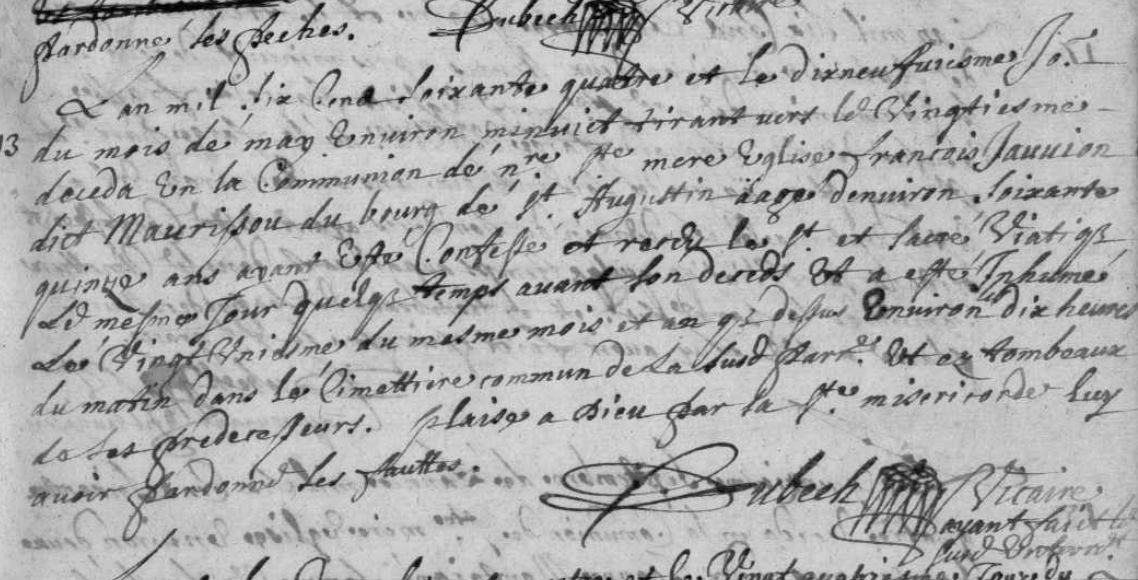 pardonné ses peches. Dubech Vicaire
L an mil six Cent soixante quattre et le dixneufuiesme Jo.r
13 du mois de may Enuiron minuict tirant vers le Vingtiesme
deceda En la Communion de n.re s.te mere Eglise francois Jauuion
dict Maurissou du bourg de s.t Augustin aagé denuiron soixante
quinze ans ayant Esté Confessé et receu le s.t et sacré Viatiq3
Le mesme Jour quelq3 temps auant son deceds Et a esté Inhumé
Le Vingt Uniesme du mesme mois et an q3 dessus Enuiron dix heures
du matin dans le Cimettiere commun de La susd parr.e Et ez tombeaux
de ses predecesseurs. plaise a Dieu par la s.te misericorde luy
auoir pardonné ses fauttes. Dubech Vicaire
ayant faict le
susd